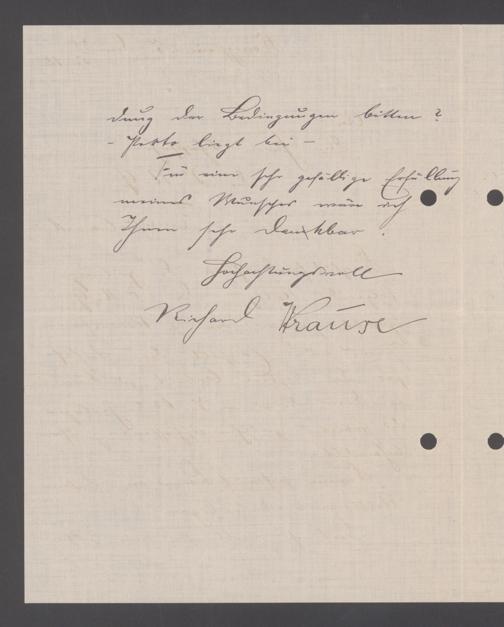 dung der Bedingungen bitten?
- Porto liegt bei -
Für eine sehr gefällige Erfüllung
meines Wunsches wäre ich
Ihnen sehr dankbar.
Hochachtungsvoll
Richard Krause